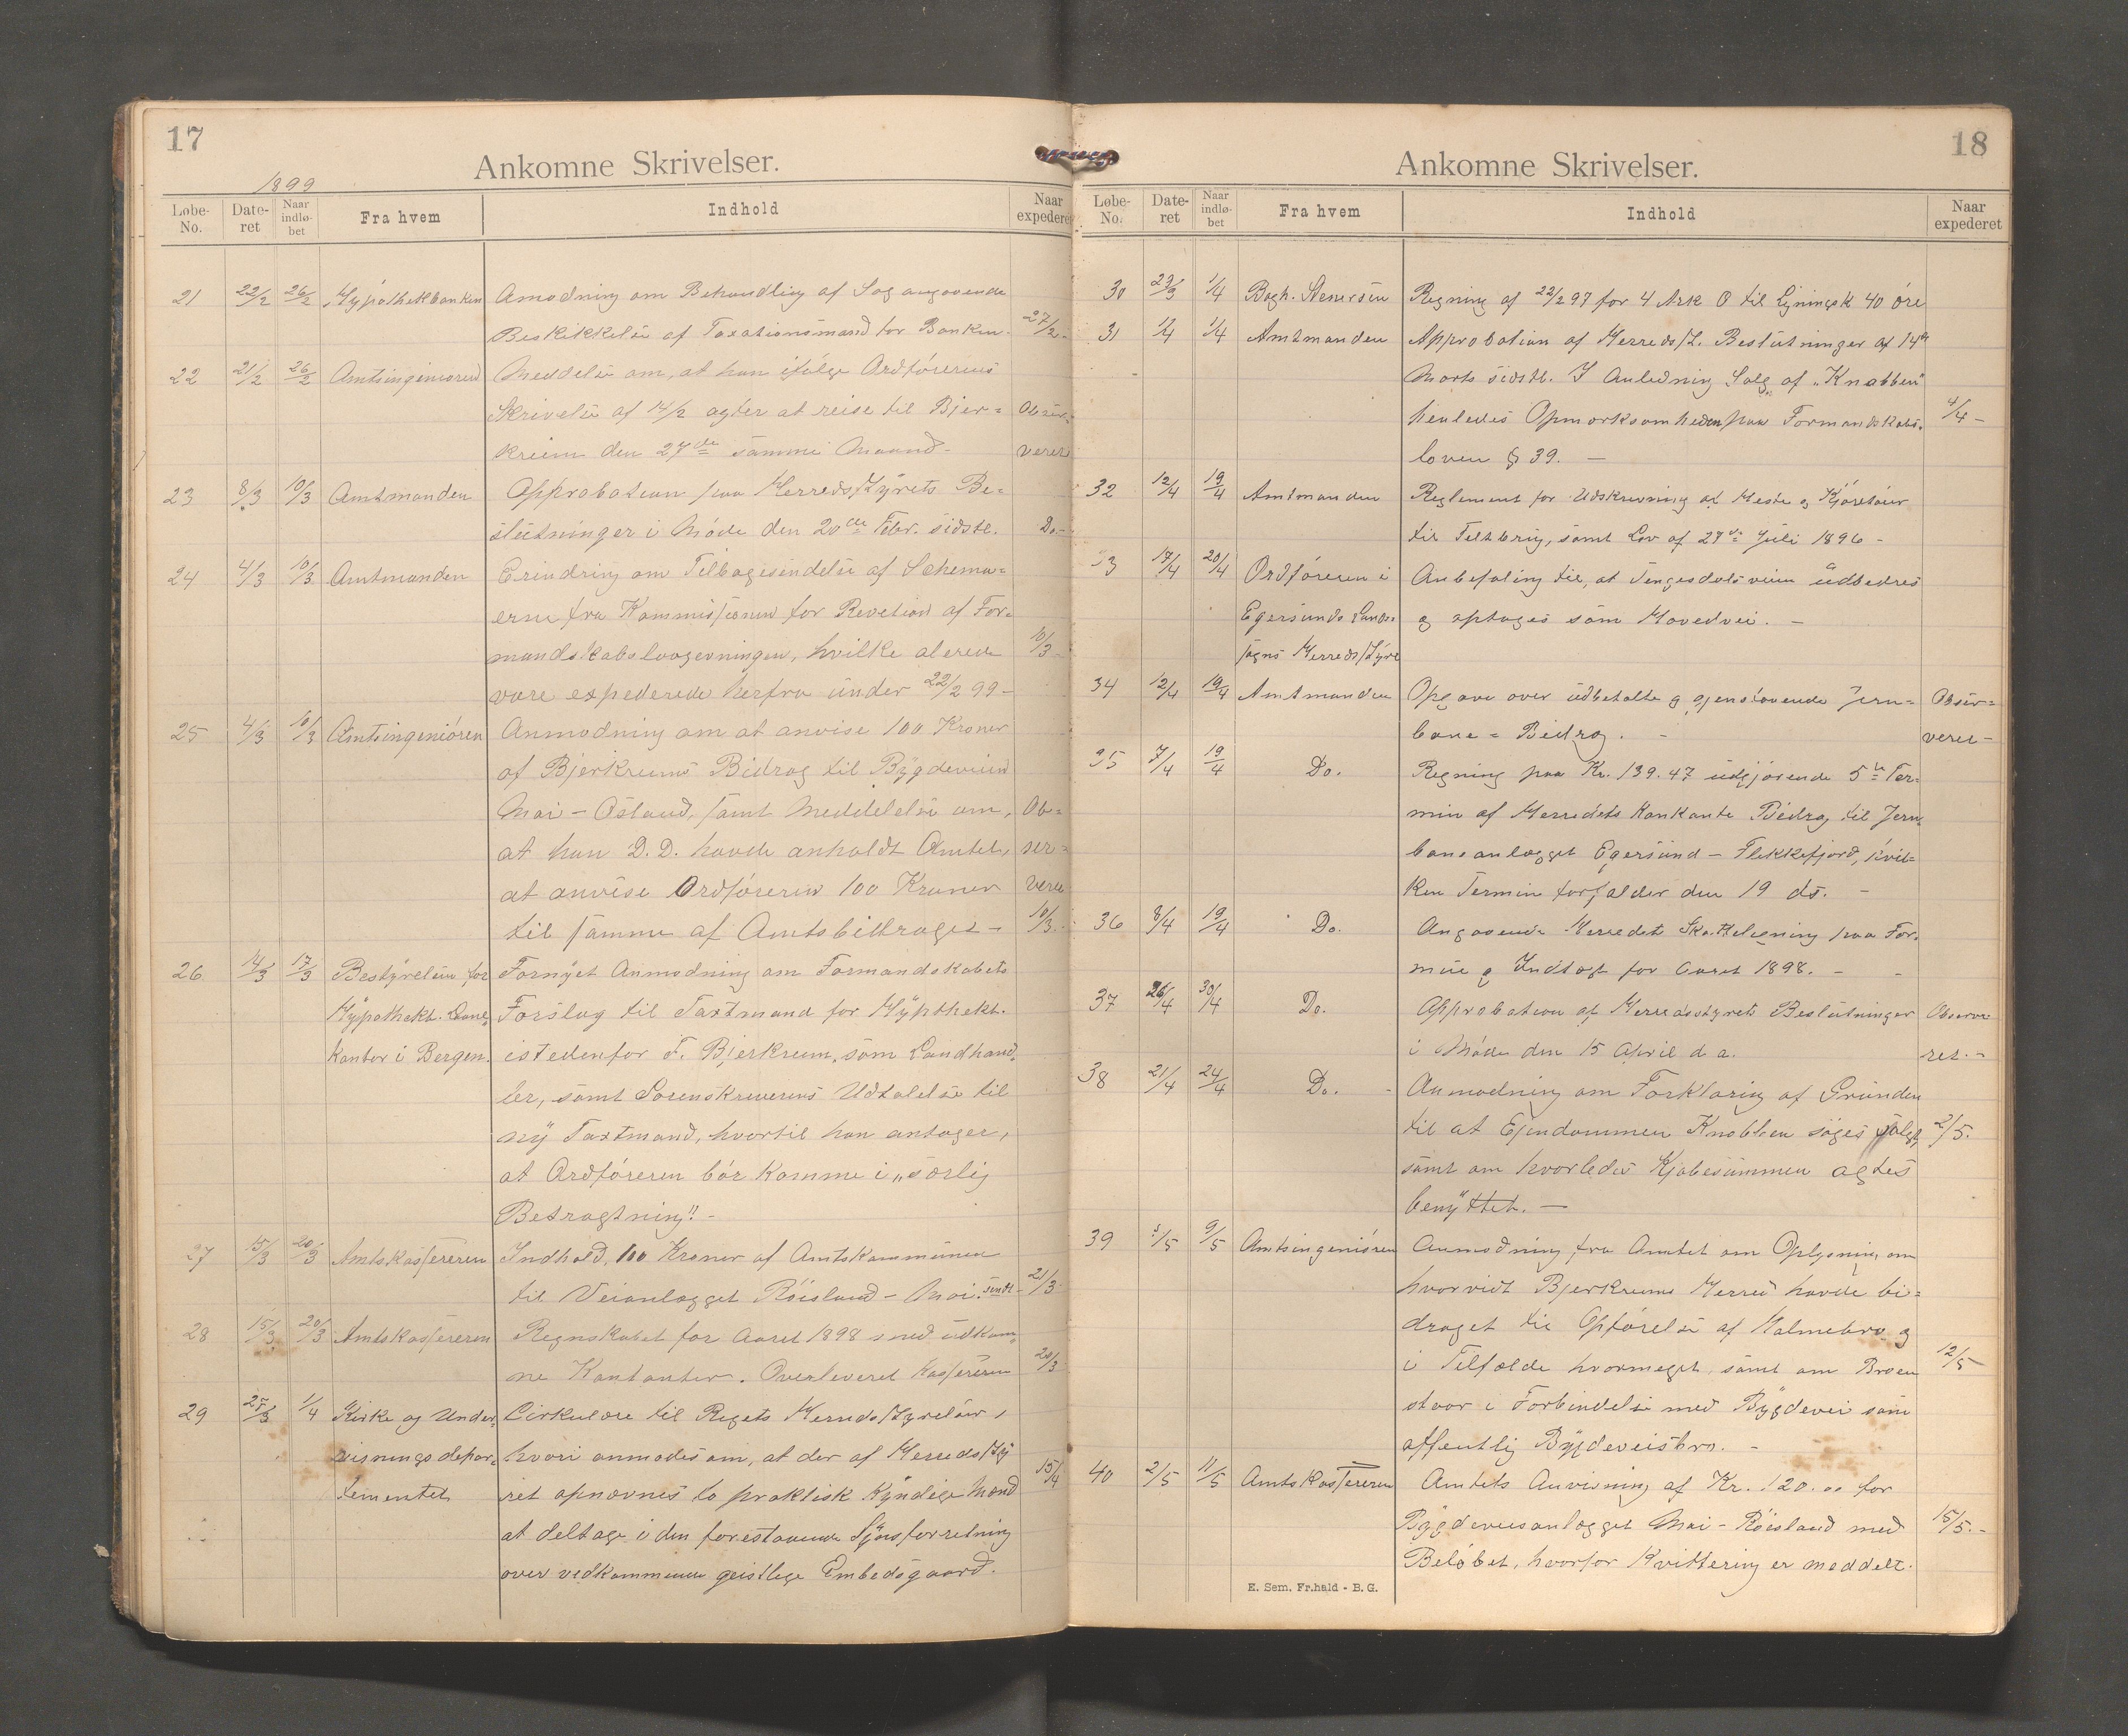 17
Ankomne Skrivelser.
1899
Løbe-No. Date-ret Naar indlø-bet Fra hvem Indhold Naar expederet
21 22/2 26/2 Hypothekbanken Amodning om Behandling af Sag angaaende
Beskikkelse af Taxationsmand for Banken. 27/2-
22 21/2 26/2 Amtsingeniøren Meddelse om, at han ifølge Ordførerens
Skrivelse af 14/2 agter at reise til Bjer= Obser-
kreim den 27de samme Maaned. veret
23 8/3 10/3 Amtmanden Approbation paa Herredsstyrets Be=
slutninger i Møde den 20de Febr. sidstl. Do.-
24 4/3 10/3 Amtmanden Erindring om Tilbagesendelse af Schema=
erne fra Kommissionen for Revetion af For=
mandskabslovgevningen, hvilke alerede 10/3-
vare expederede herfra under 22/2 99-
25 4/3 10/3 Amtsingeniøren Anmodning om at anvise 100 Kroner
af Bjerkreims Bidrag til Bygdeveien
Mai - Øsland, samt Meddelelse om, Ob=
at han D.D. havde anholdt Amtet, ser=
at anvise Ordføreren 100 Kroner veret
til samme af Amtsbidraget - 10/3.
26 14/3 17/3 Bestyrelsen for Fornyet Anmodning om Formandskabets
Hypothekb. Laane- Forslag til Taxtmand for Hypthekb.
kontor i Bergen. istedenfor F. Bjerkreim, som Landhand-
ler, samt Sorenskriverens Udtalelse til
ny Taxtmand, hvortil han antager,
at Ordføreren bør komme i "særlig
Betragtning". -
27 15/3 20/3 Amtskassereren Indhold, 100 Kroner af Amtskommunen
til Veianlægget Røisland - Mai. sendt 21/3-
28 15/3 20/3 Amtskassereren Regnskabet for Aaret 1898 med udkom-
ne Kontanter. Overleveret Kassereren 20/3
29 25/3 1/4 Kirke og Under- Cirkulære til Rigets Herredsstyrelser,
visningsdepar- hvori anmodes om, at der af Herredssty
tementet ret opnævnes to praktisk kyndige Mænd 15/4
at deltage i den forestaaende Synsforretning
over vedkommende geistlige Embedsgaard.
18
Ankomne Skrivelser.
Løbe-No. Date-ret Naar indlø-bet Fra hvem Indhold Naar expederet
30 23/3 1/4 Bogh. Stenersen Regning af 22/2 97 for 4 Ark O til Ligningsk 40 øre
31 1/4 1/4 Amtmanden Approbation af Herredsst. Beslutninger af 14de
Marts sidstl. I Anledning Salg af "Knabben"
henledes Opmærksomheden paa Formandskabs- 4/4-
loven § 39. -
32 12/4 19/4 Amtmanden Reglement for Udskrivning af Heste og Kjøretøier
til Feltbrug, samt Lov af 27de Juli 1896 -
33 17/4 20/4 Ordføreren i Anbefaling til, at Tengesdalsveien udbedres
Egersunds Lands- og optages som Hovedvei. -
sogns Herredsstyre
34 12/4 19/4 Amtmanden Opgave over udbetalte og gjenstaaende Jern= Obser=
bane = Bidrag. - veret-
35 7/4 19/4 Do. Regning paa Kr. 139.47 udgjørende 5te Ter-
min af Herredets Kontante Bidrag til Jern-
baneanlægget Egersund - Flekkefjord, hvil-
ken Termin forfalder den 19 ds. -
36 8/4 19/4 Do. Angaaende Herredets Skatteligning paa For-
mue og Indtægt for Aaret 1898. -
37 26/4 30/4 Do. Approbation af Herredsstyrets Beslutninger Observe
i Møde den 15 April d. a. ret.-
38 21/4 24/4 Do. Anmodning om Forklaring af Grunden
til at Ejendommen Knabben søges solgt, 2/5.
samt om hvorledes Kjøbesummen agtes
benyttet. -
39 5/5 9/5 Amtsingeniøren Anmodning fra Amtet om Oplysning om
hvorvidt Bjerkreims Herred havde bi=
draget til Opførelse af Malmebro og
i Tilfælde hvormeget, samt om Broen 12/5
staar i Forbindelse med Bygdevei som
offentlig Bygdeveisbro. -
40 2/5 11/5 Amtskassereren Amtets Anvisning af Kr. 120.00 for
Bygdeveisanlægget Mai - Røisland med 15/5.-
Beløbet, hvorfor Kvittering er meddelt.
E. Sem, Fr.hald - B. G.